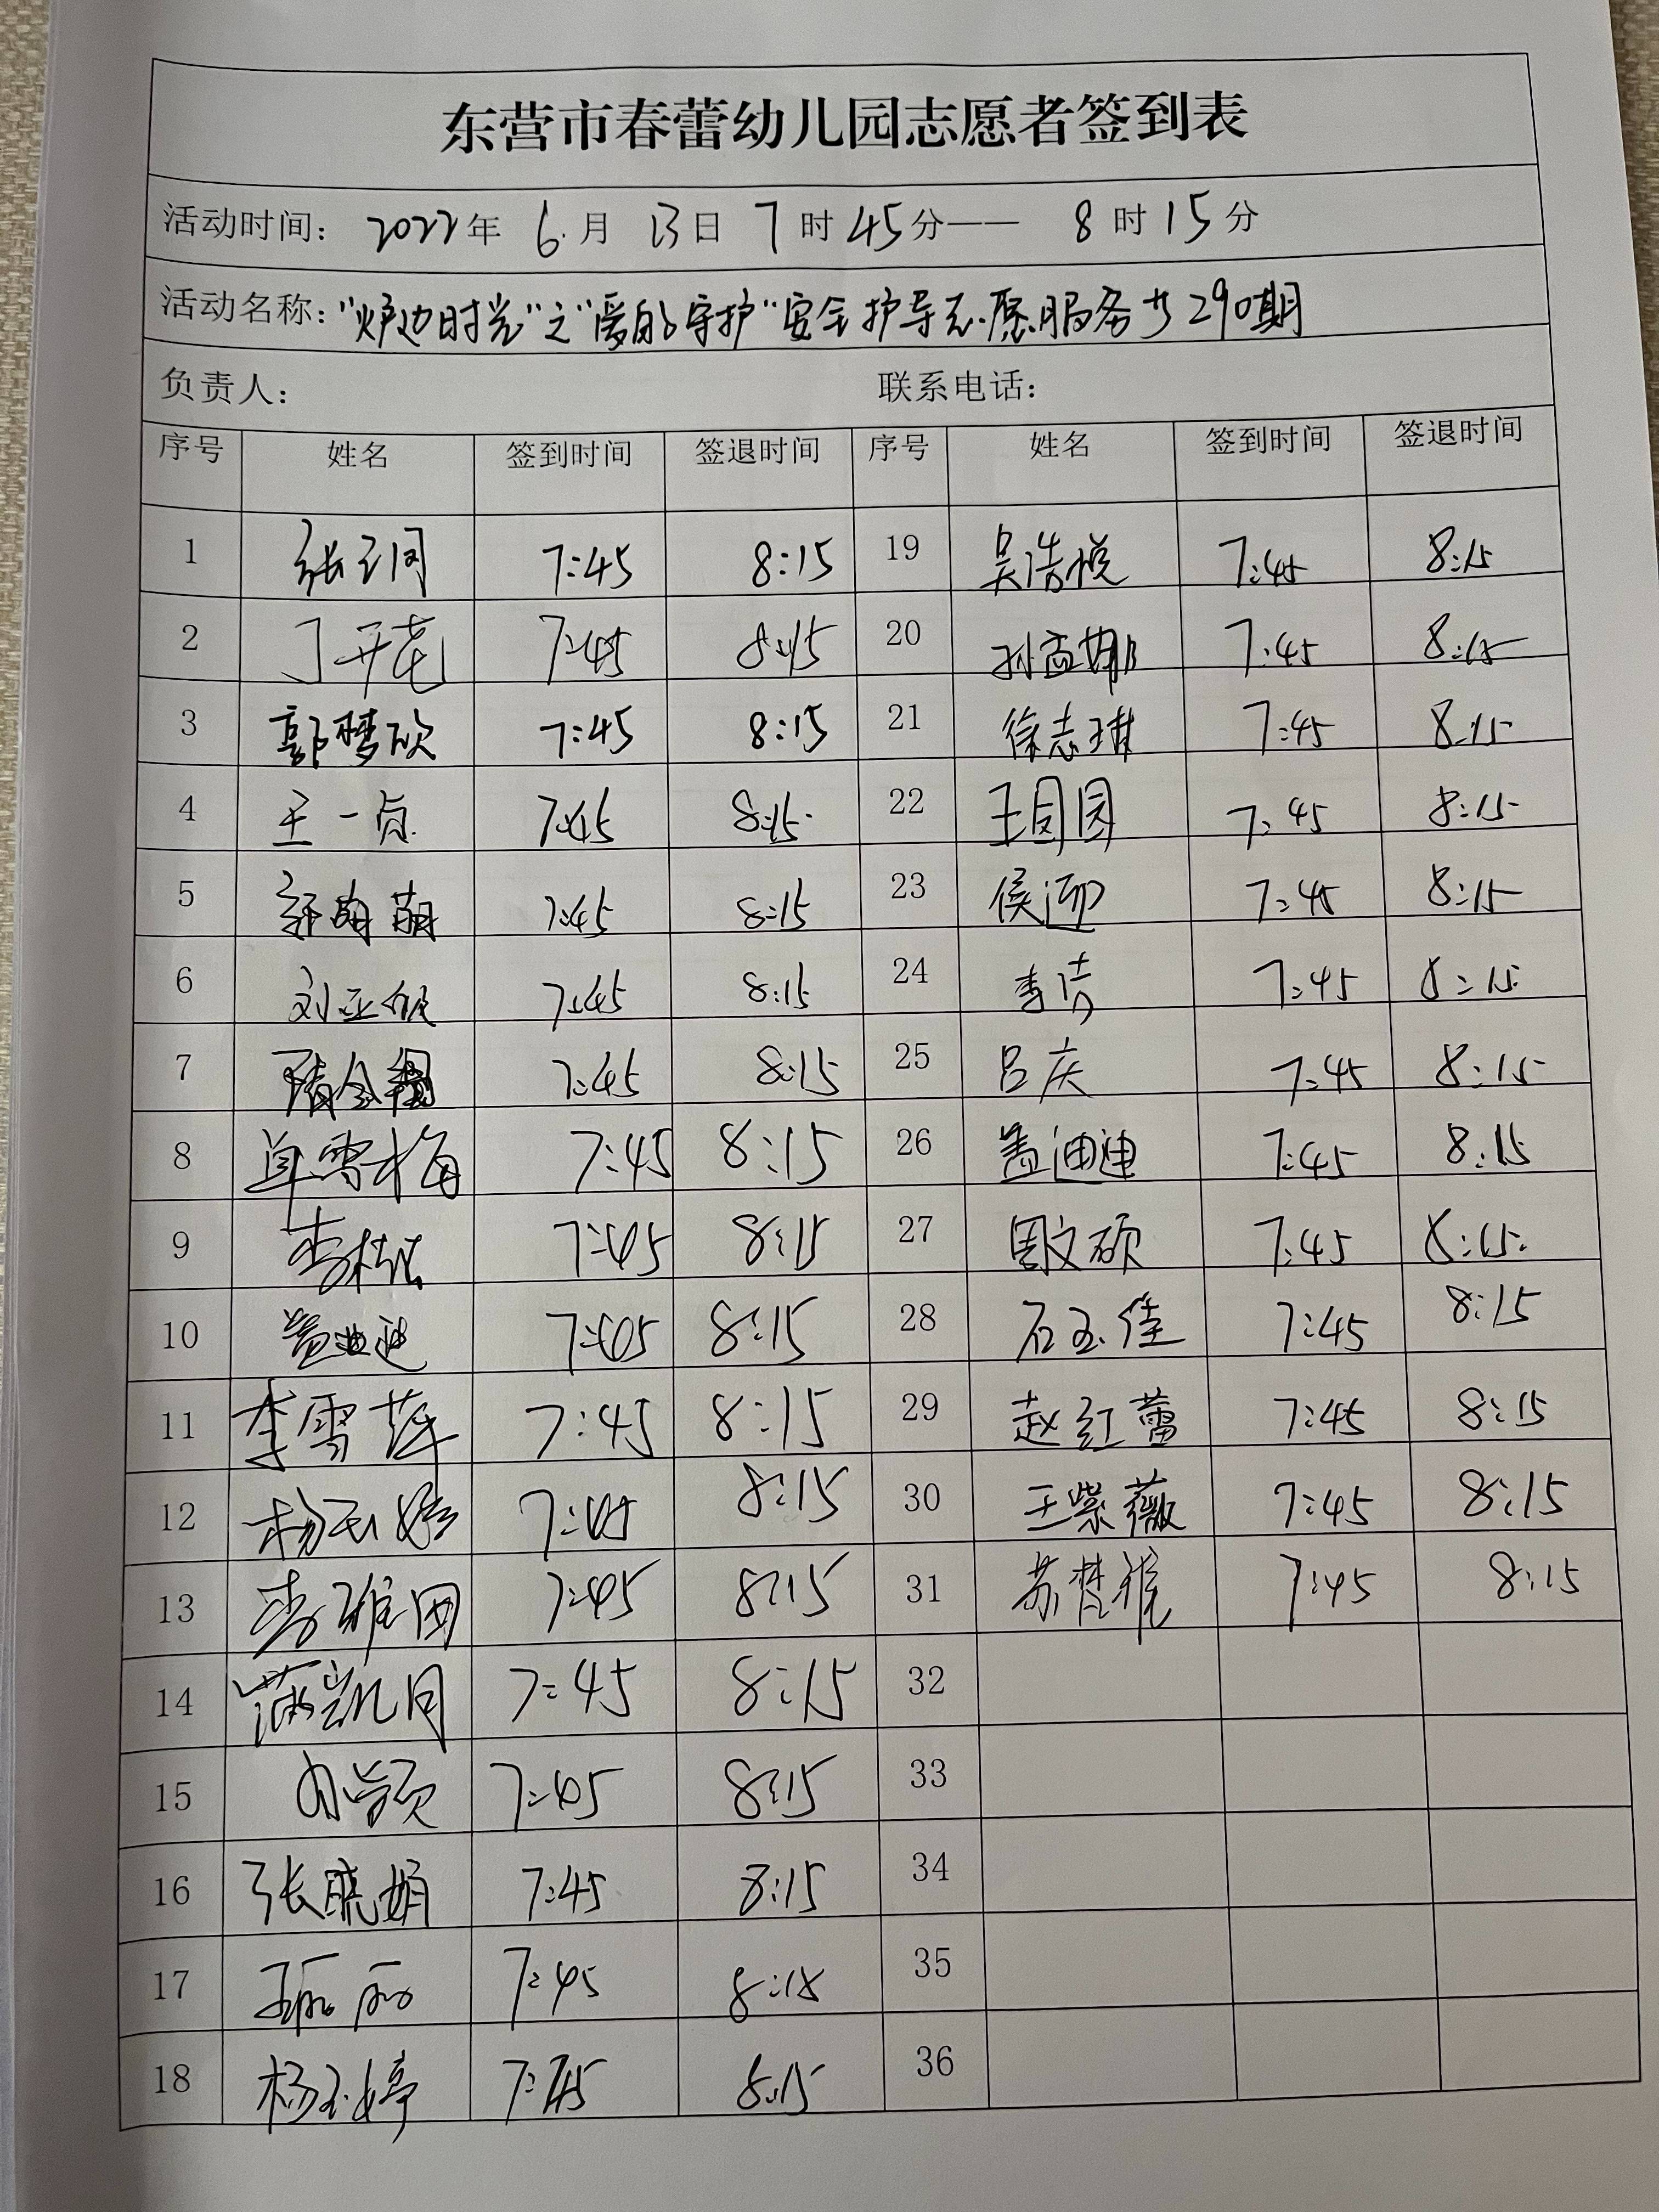 东营市春蕾幼儿园志愿者签到表
活动时间: 2022年 6月 13日 7时45分—— 8时15分
活动名称:"炉边时光"之"爱的守护"安全护导志愿服务共290期
负责人: 联系电话:
序号 姓名 签到时间 签退时间 序号 姓名 签到时间 签退时间
1 7:45 8:15 19 吴浩悦 7:45 8:15
2 丁开花 7:45 8:15 20 孙孟娜 7:45 8:15
3 郭梦欣 7:45 8:15 21 徐志琪 7:45 8:15
4 王一贞 7:45 8:15 22 王圆圆 7:45 8:15
5 7:45 8:15 23 侯迎 7:45 8:15
6 7:45 8:15 24 李洁 7:45 8:15
7 7:45 8:15 25 吕庆 7:45 8:15
8 单雪梅 7:45 8:15 26 盖迪迪 7:45 8:15
9 7:45 8:15 27 周文硕 7:45 8:15
10 7:45 8:15 28 石玉佳 7:45 8:15
11 李雪萍 7:45 8:15 29 赵红蕾 7:45 8:15
12 7:45 8:15 30 王紫薇 7:45 8:15
13 7:45 8:15 31 7:45 8:15
14 蒲凯月 7:45 8:15 32
15 7:45 8:15 33
16 张晓娟 7:45 8:15 34
17 7:45 8:15 35
18 杨玉婷 7:45 8:15 36